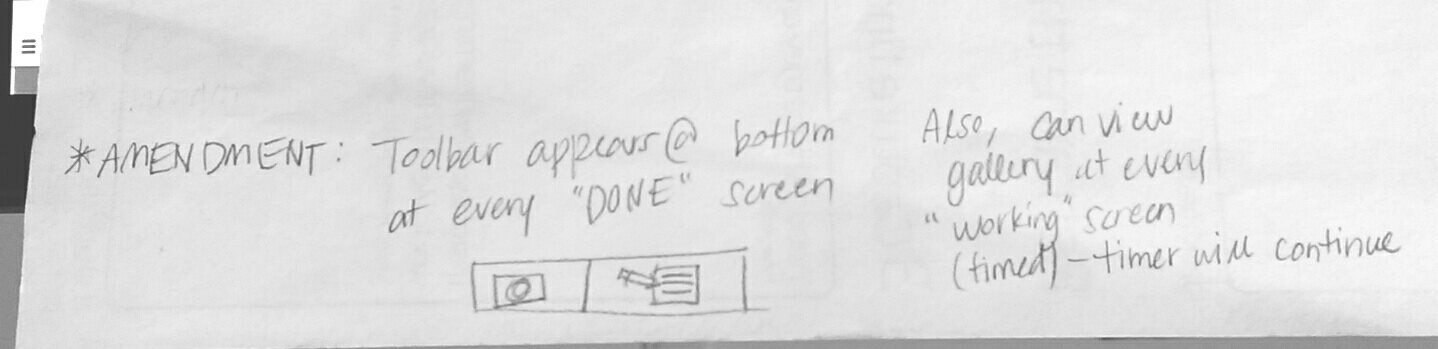 *AMENDMENT: Toolbar appears @ bottom
at every "DONE" screen
Also, can view
gallery at every
"working" screen
(timed) – timer will continue